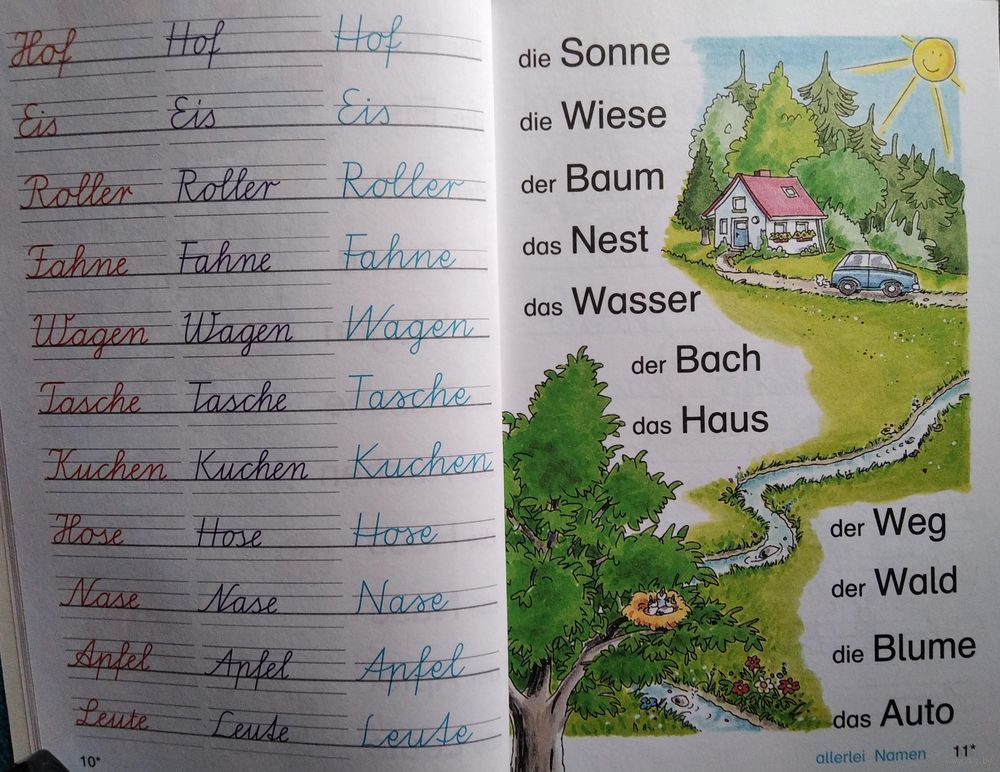 Hof Hof Hof
Eis Eis Eis
Roller Roller Roller
Fahne Fahne Fahne
Wagen Wagen Wagen
Tasche Tasche Tasche
Kuchen Kuchen Kuchen
Hose Hose Hose
Nase Nase Nase
Apfel Apfel Apfel
Leute Leute Leute
10*
die Sonne
die Wiese
der Baum
das Nest
das Wasser
der Bach
das Haus
der Weg
der Wald
die Blume
das Auto
allerlei Namen 11*